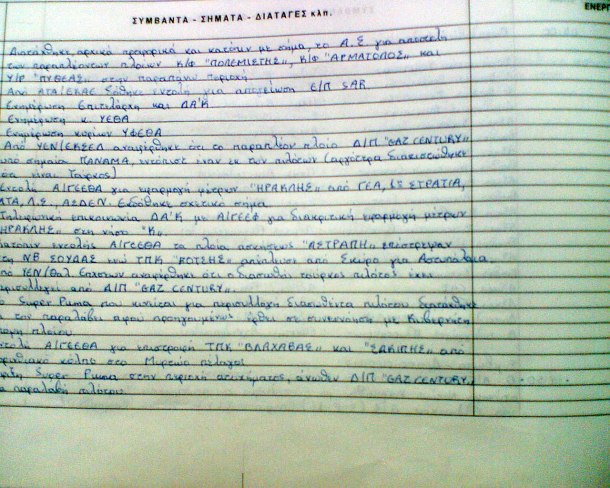 ΣΥΜΒΑΝΤΑ - ΣΗΜΑΤΑ - ΔΙΑΤΑΓΕΣ κλπ.
ΕΝΕΡΓ
Διατάχθηκε, αρχικά προφορικά και κατόπιν με σήμα, το Α.Σ για αποστολή
των παραπλεόντων πλοίων Κ/Φ "ΠΟΛΕΜΙΣΤΗΣ", Κ/Φ "ΑΡΜΑΤΟΛΟΣ" και
Υ/Ρ "ΠΥΘΕΑΣ" στην παραπάνω περιοχή.
Από ΑΤΑ/ΕΚΑΕ δόθηκε εντολή για απογείωση Ε/Π SAR.
Ενημέρωση Επιτελάρχη και ΔΑ'Κ
Ενημέρωση κ. ΥΕΘΑ
Ενημέρωση κυρίων ΥΦΕΘΑ
Από ΥΕΝ/ΕΚΣΕΔ αναφέρθηκε ότι το παραπλέον πλοίο Δ/Π "GAZ CENTURY"
υπό σημαία ΠΑΝΑΜΑ, εντόπισε έναν εκ των πιλότων (αργότερα διαπιστώθηκε
ότι είναι Τούρκος)
Εντολή Α/ΓΕΕΘΑ για εφαρμογή μέτρων "ΗΡΑΚΛΗΣ" από ΓΕΑ, ΣΤΡΑΤΙΑ,
ΑΤΑ, Α.Σ., ΑΣΔΕΝ. Εκδόθηκε σχετικό σήμα.
Τηλεφωνική επικοινωνία ΔΑ'Κ με Α/ΓΕΕΦ για διακριτική εφαρμογή μέτρων
ΗΡΑΚΛΗΣ" στη νήσο "Κ"
Κατόπιν εντολής Α/ΓΕΕΘΑ τα πλοία ασκήσεως "ΑΣΤΡΑΠΗ" επέστρεψαν
στη ΝΒ ΣΟΥΔΑΣ ενώ ΤΠΚ "ΒΟΤΣΗΣ" απέπλευσε από Σκύρο για Αστυπάλαια.
από ΥΕΝ/Θαλ Επιχ/σεων αναφέρθηκε ότι ο διασωθείς τούρκος πιλότος έχει
περισυλλεγεί από Δ/Π "GAZ CENTURY".
Super Puma που κινείται για περισυλλογή διασωθέντα πιλότου διατάχθηκε
να τον παραλάβει αφού προηγουμένως έρθει σε συνεννόηση με Κυβερνήτη
πλοίου
Εντολή Α/ΓΕΕΘΑ για επιστροφή ΤΠΚ "ΒΛΑΧΑΒΑΣ" και από
κόλπο στο Μυρτώο πέλαγος
Super Puma στην περιοχή ατυχήματος, άνωθεν Δ/Π "GAZ CENTURY"
παραλαβή πιλότου